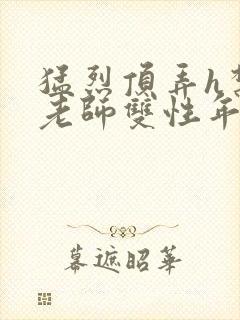 猛烈頂弄h
老師雙性年
幕遮昭華